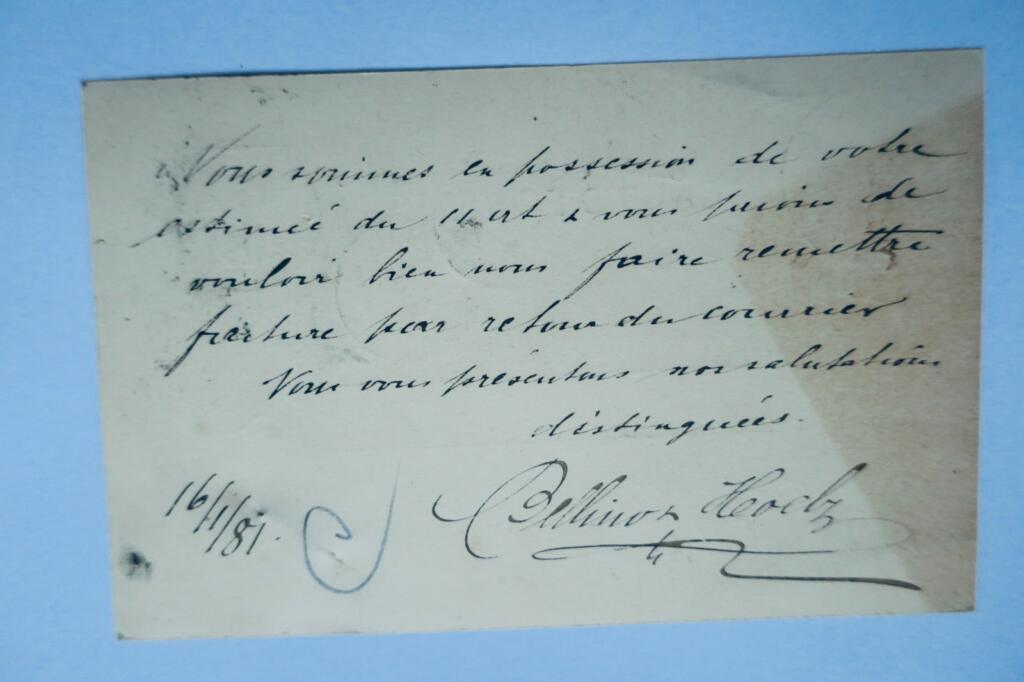 Nous sommes en possession de votre
estimée du 11 crt & vous prions de
vouloir bien nous faire remettre
facture par retour du courrier
Nous vous présentons nos salutations
distinguées.
16/1/81.
Bellino &